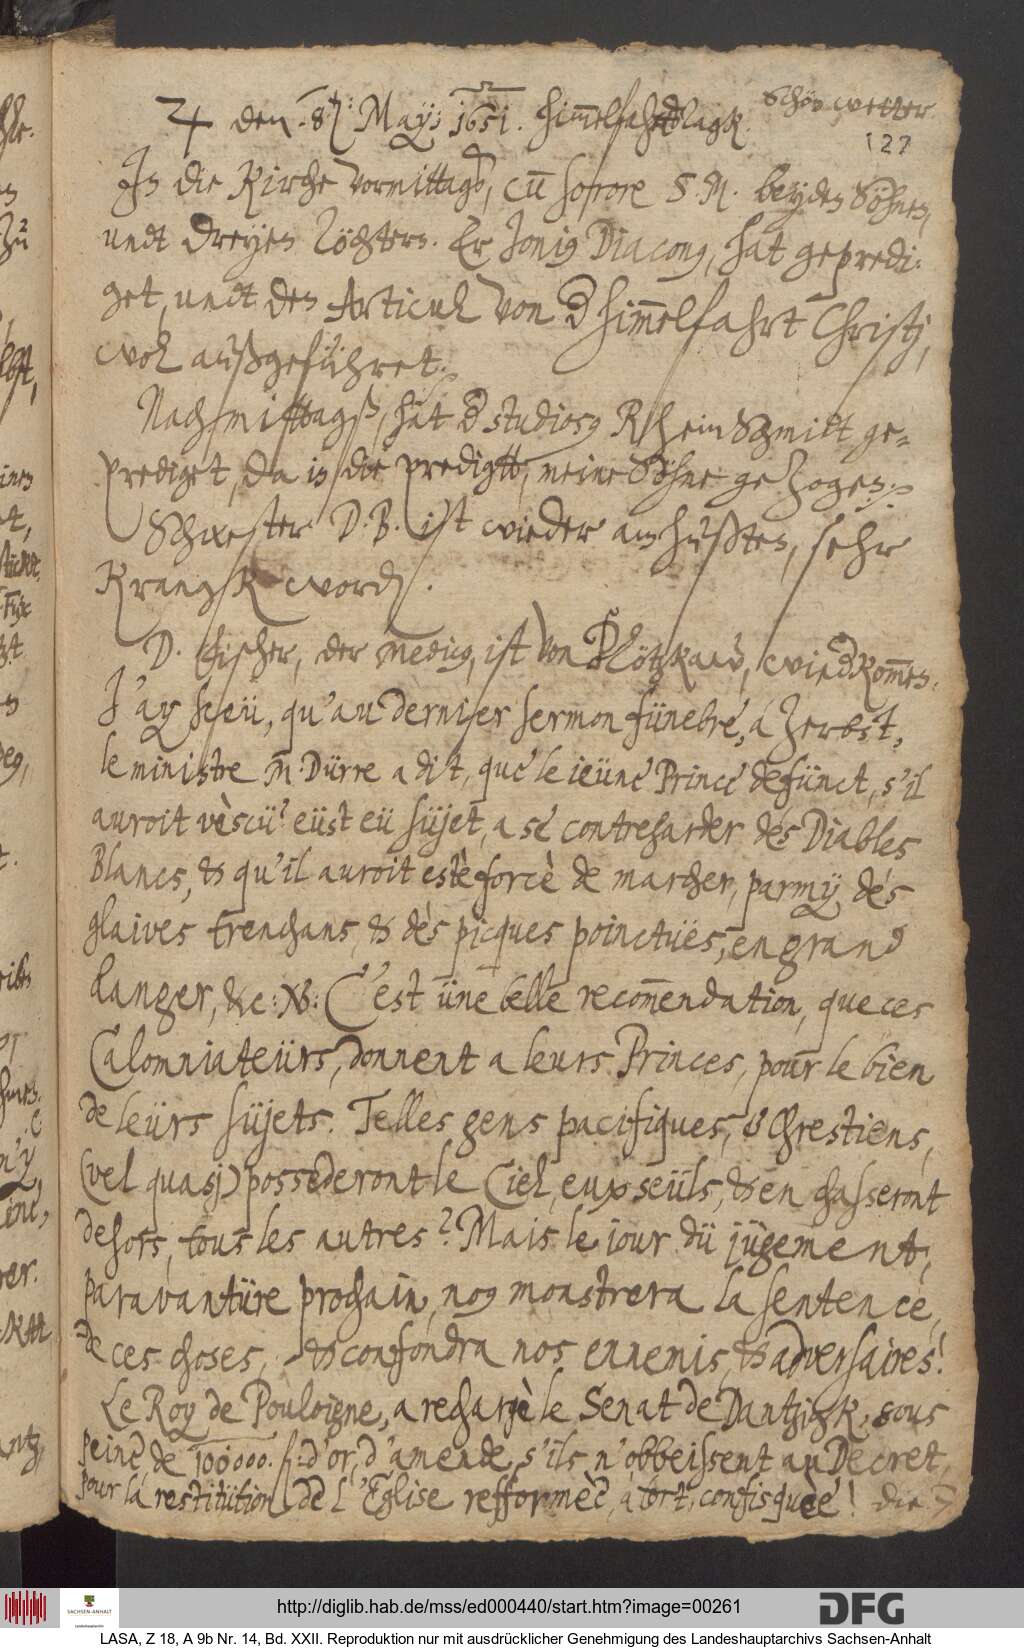 ♃ den 8. May; 1651. Himmelfahrtstagk. Schön wetter
127
In die Kirche vormittags, cū sorore S. M. beyden Söhnen,
undt dreyen Töchtern. Er Jonius Diaconus, hat gepredi:
get, undt den Articul von d̄ him̄elfahrt Christj,
wol außgeführet.
Nachmittagß, hat d̄ studiosus Rhein Schmidt ge-
prediget, da in die predigtt, meine Söhne gezogen.
Schwester D. B. ist wieder am hußten, sehr
Krangk worden.
D. Fischer, der medicus, ist von Plötzkaw, wied kom̄en.
J'ay sceü, qu'au dernier sermon fünebré, á Zerbst,
le ministre m̄. Dürre a dit, qué le ieüné Princé defünct, s'il
auroit vèscü? eüst eü süjet, a sé contregarder dés Diables
Blancs, & qu'il auroit estè forcè de marcher, parmy dés
glaives trenchans, & dés picques poinctuës, en grand
danger, &c: NB: C'est üne belle recom̄endation, que ces
Calomniateürs, donnent a leurs Princes, pour le bien
de leürs süjets. Telles gens pacifiques, & Chrestiens,
(vel quasj) possederont le Ciel, eux seüls, & en chasseront
dehors, tous les autres? Mais le jour dü jügement,
paravantüre prochain, nous monstrera la sentence,
de ces choses, & confondra nos ennemis, & adversaires!
Le Roy de Pouloigne, a rechargè le Senat de Dantzigk, sous
peiné de 100000. fl: d'or, d'amende, s'ils n'obbeissent au Decret,
pour la restitütion de l'Eglise refformèe, á tort, confisquée! Die
http://diglib.hab.de/mss/ed000440/start.htm?image=00261
SACHSEN-ANHALT
DFG
LASA, Z 18, A 9b Nr. 14, Bd. XXII. Reproduktion nur mit ausdrücklicher Genehmigung des Landeshauptarchivs Sachsen-Anhalt